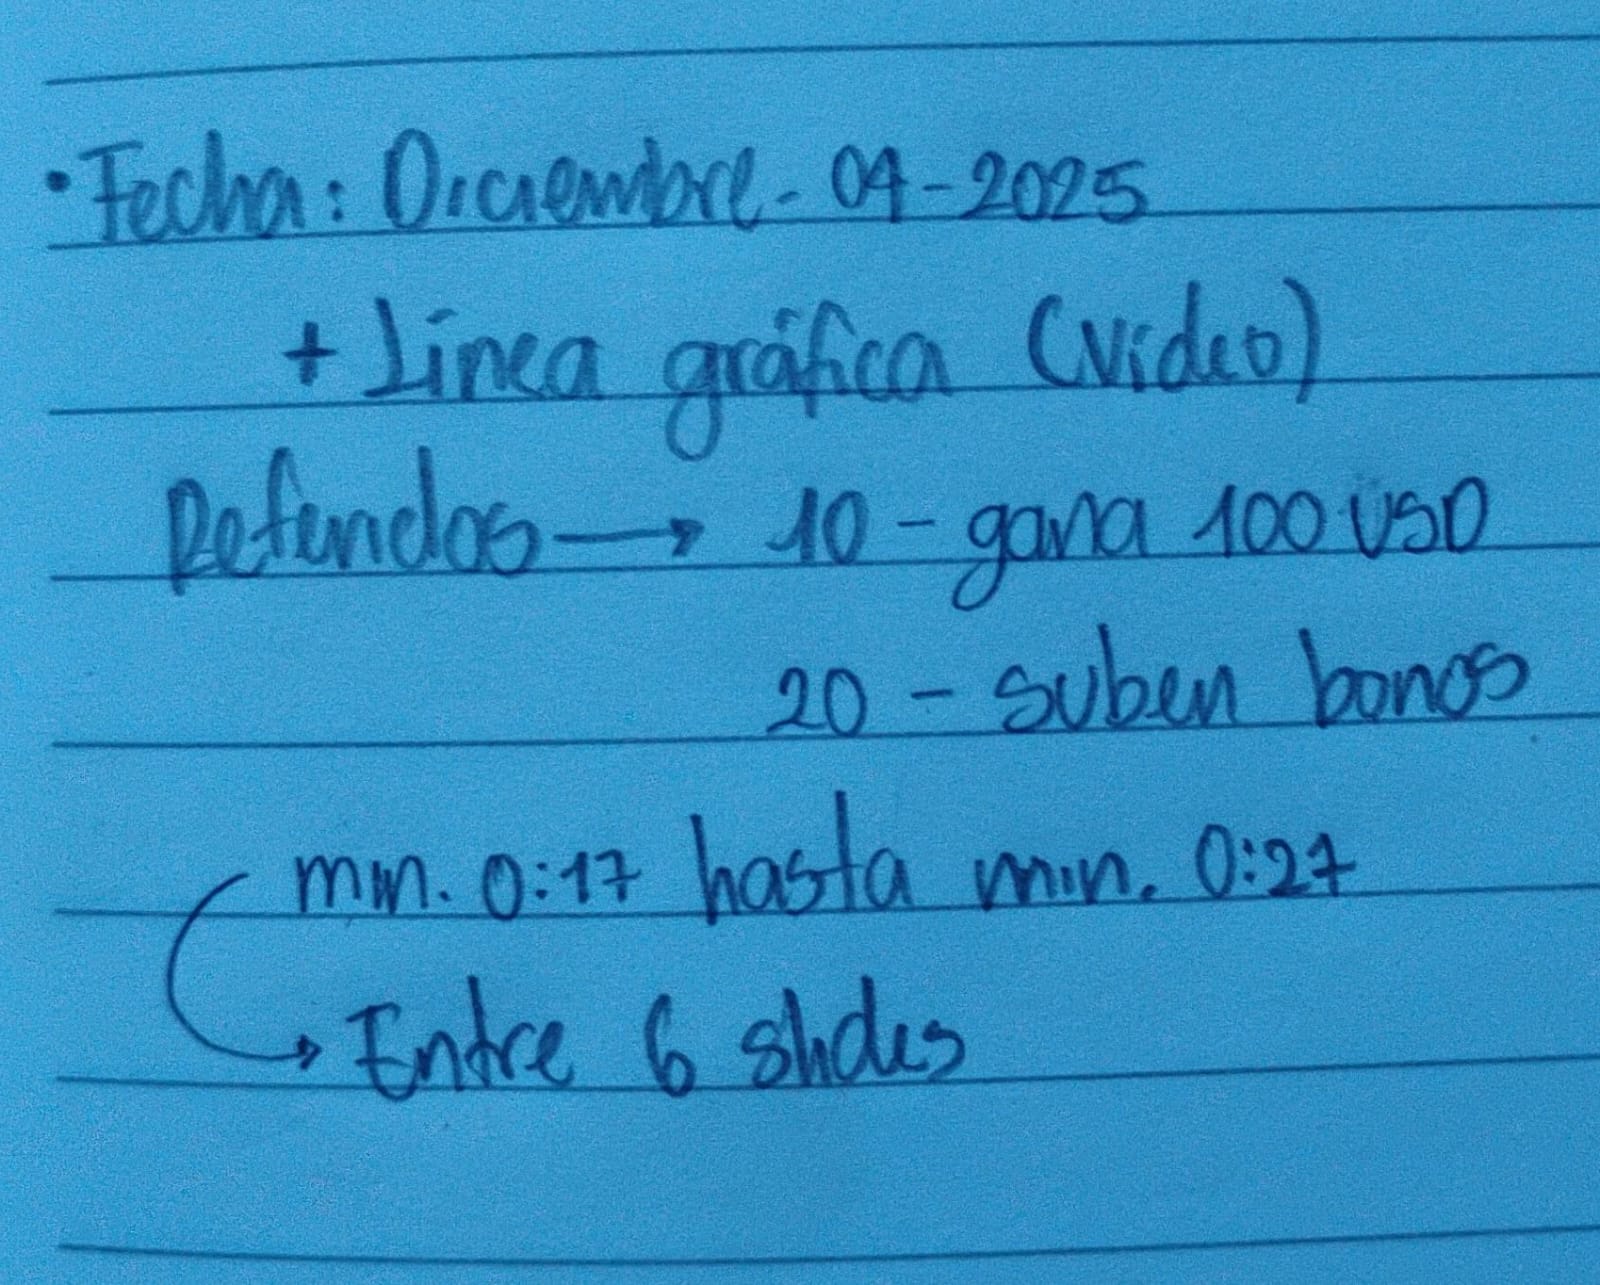 • Fecha: Diciembre - 04 - 2025
+ Línea gráfica (video)
Referidos → 10 - gana 100 USD
20 - suben bonos
min. 0:17 hasta min. 0:27
→ Entre 6 slides